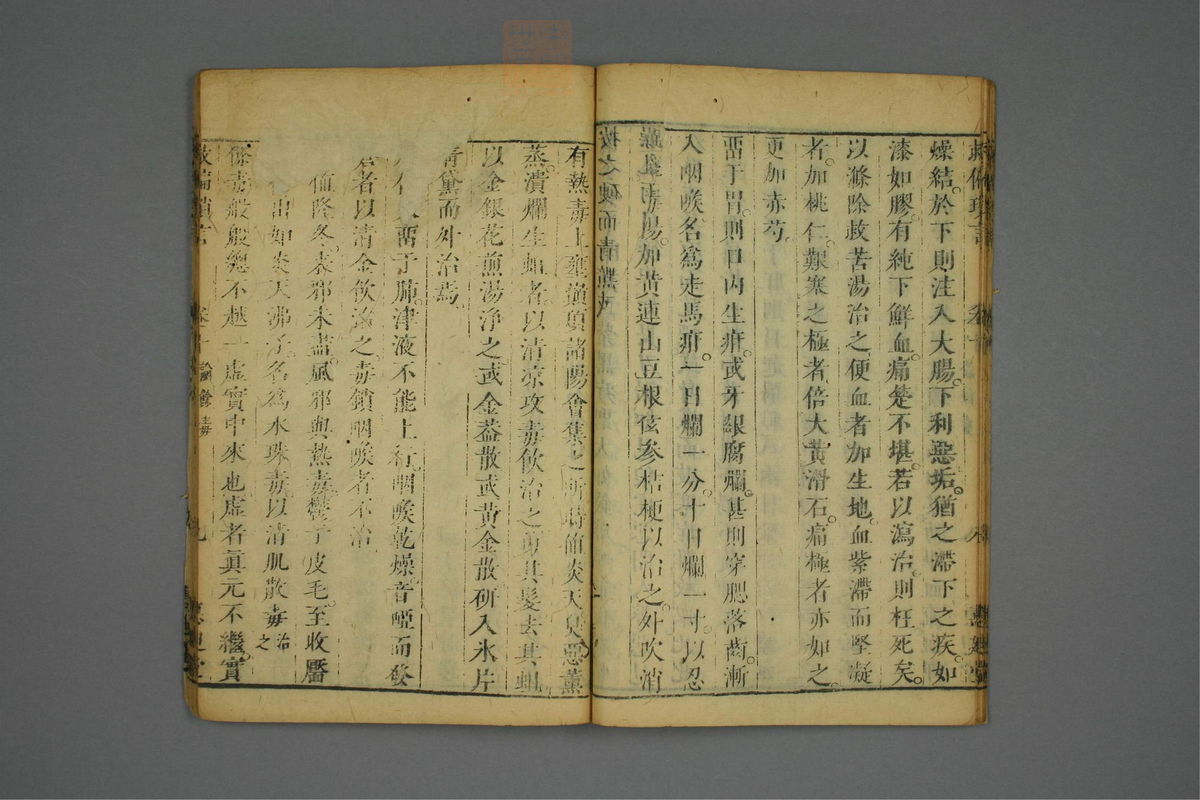 燥結於下則注入大腸下利惡垢猶之滯下之疾如
漆如膠有純下鮮血痛楚不堪若以瀉治則枉死矣
以滌除救苦湯治之便血者加生地血紫滯而堅凝
者加桃仁艱寒之極者倍大黃滑石痛極者亦如之
更加赤芍
畱于胃則口內生疳或牙齦腐爛甚則穿腮落齒漸
入咽喉名爲走馬疳一日爛一分十日爛一寸以忍
加黃連山豆根玄參桔梗以治之外吹消
有熱毒上壅巔頂諸陽會集之所時值炎天臭惡薰
蒸潰爛生蛆者以清凉攻毒飲治之剪其髮去其蛆
以金銀花煎湯淨之或金蓋散或黃金散研入氷片
青黛而外治焉
畱于肺津液不能上行咽喉乾燥音啞而發
者以清金飲治之毒鎖咽喉者不治
值隆冬表邪未盡風邪與熱毒鬱于皮毛至收靨
出如炎天沸子名爲水珠毒以清肌散毒治之
餘毒般般總不越一虛實中來也虛者眞元不繼實